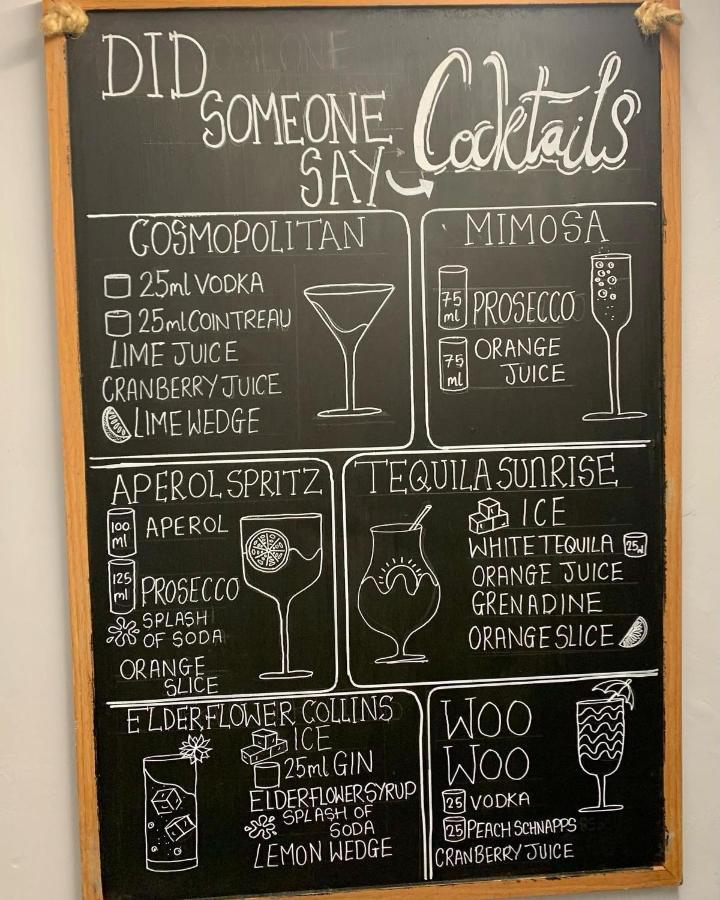 DID
SOMEONE
SAY
Cocktails
COSMOPOLITAN
25ml VODKA
25ml COINTREAU
LIME JUICE
CRANBERRY JUICE
LIME WEDGE
MIMOSA
75 ml PROSECCO
75 ml ORANGE
JUICE
APEROL SPRITZ
100 ml APEROL
125 ml PROSECCO
SPLASH
OF SODA
ORANGE
SLICE
TEQUILA SUNRISE
ICE
WHITE TEQUILA 25ml
ORANGE JUICE
GRENADINE
ORANGE SLICE
ELDERFLOWER COLLINS
ICE
25ml GIN
ELDERFLOWER SYRUP
SPLASH OF
SODA
LEMON WEDGE
WOO
WOO
25 VODKA
25 PEACH SCHNAPPS
CRANBERRY JUICE